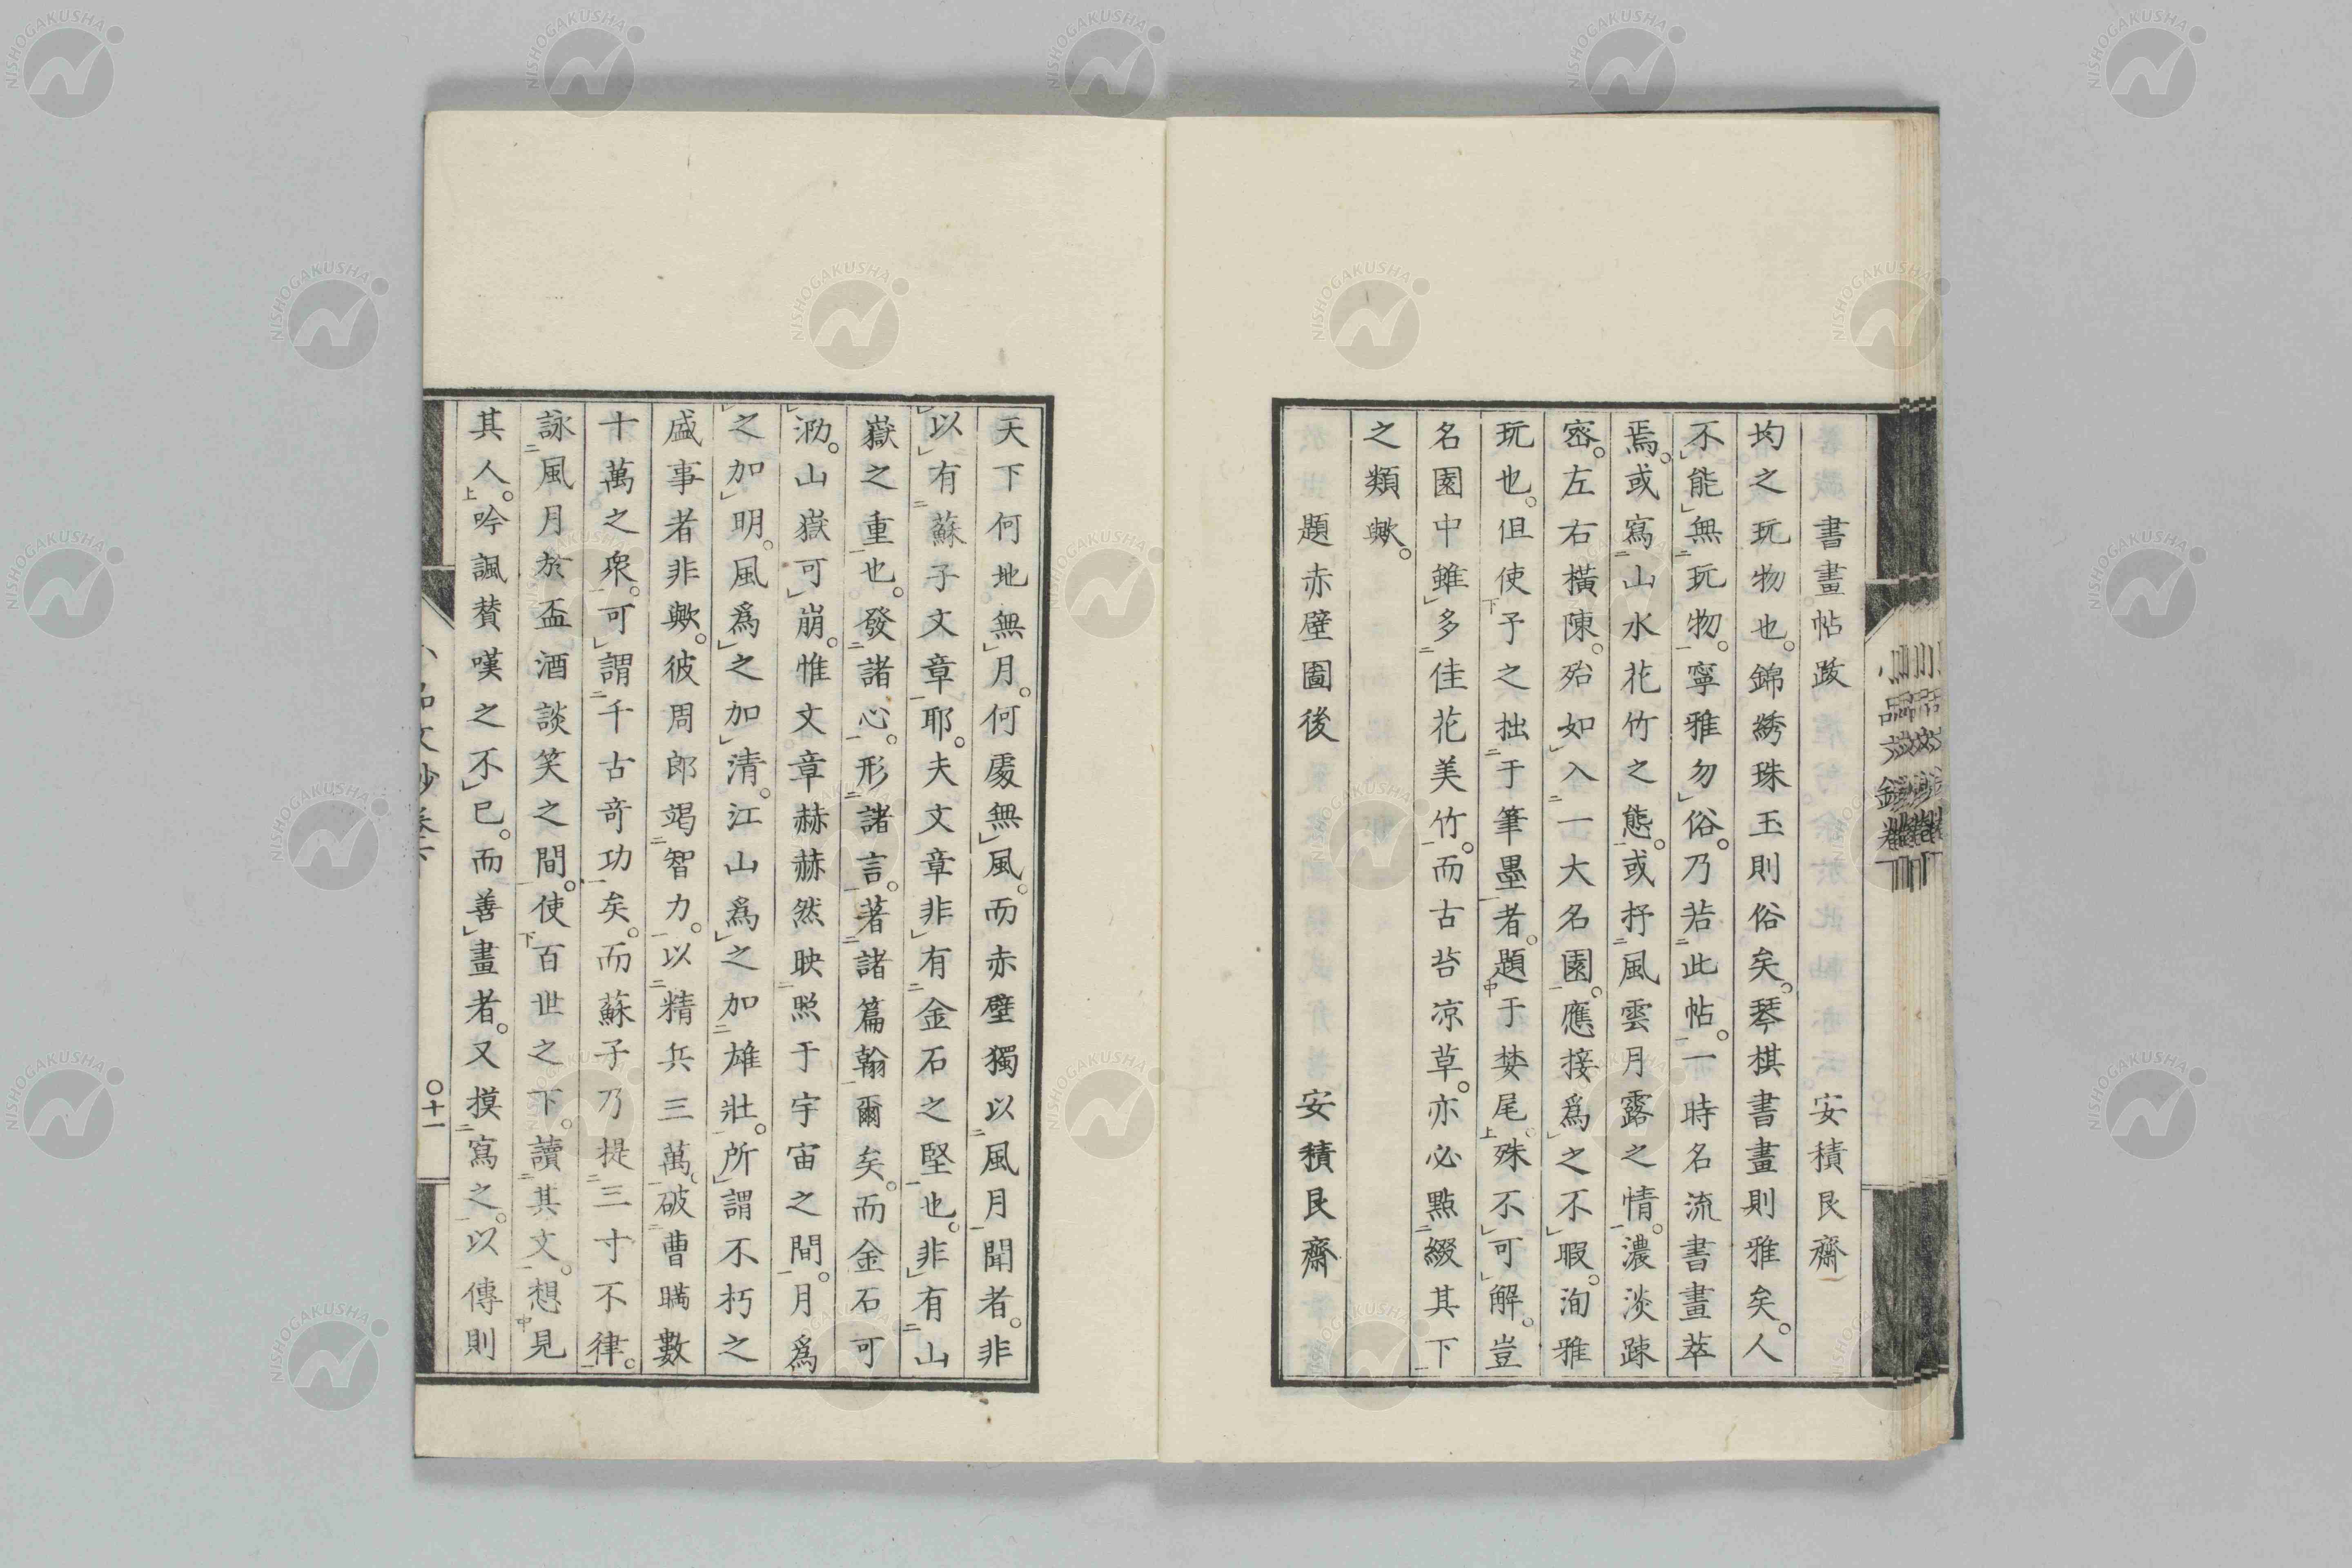 書畫帖跋　安積艮齋
均之玩物也。錦綉珠玉則俗矣。琴棋書畫則雅矣。人
不能無玩物。寧雅勿俗。乃若此帖。一時名流書畫萃
焉。或寫山水花竹之態。或抒風雲月露之情。濃淡踈
密。左右橫陳。殆如入一大名園。應接爲之不暇。洵雅
玩也。但使予之拙于筆墨者。題于婪尾。殊不可解。豈
名園中雖多佳花美竹。而古苔凉草。亦必點綴其下
之類歟。
題赤壁圖後　安積艮齋
天下何地無月。何處無風。而赤壁獨以風月聞者。非
以有蘇子文章耶。夫文章非有金石之堅也。非有山
嶽之重也。發諸心。形諸言。著諸篇翰爾矣。而金石可
泐。山嶽可崩。惟文章赫赫然映照于宇宙之間。月爲
之加明。風爲之加清。江山爲之加雄壯。所謂不朽之
盛事者非歟。彼周郎竭智力。以精兵三萬。破曹瞞數
十萬之衆。可謂千古奇功矣。而蘇子乃提三寸不律。
詠風月於盃酒談笑之間。使百世之下。讀其文。想見
其人。吟諷贊嘆之不已。而善畫者。又摸寫之。以傳則
〇十一
小品文鈔卷下
NISHOGAKUSHA